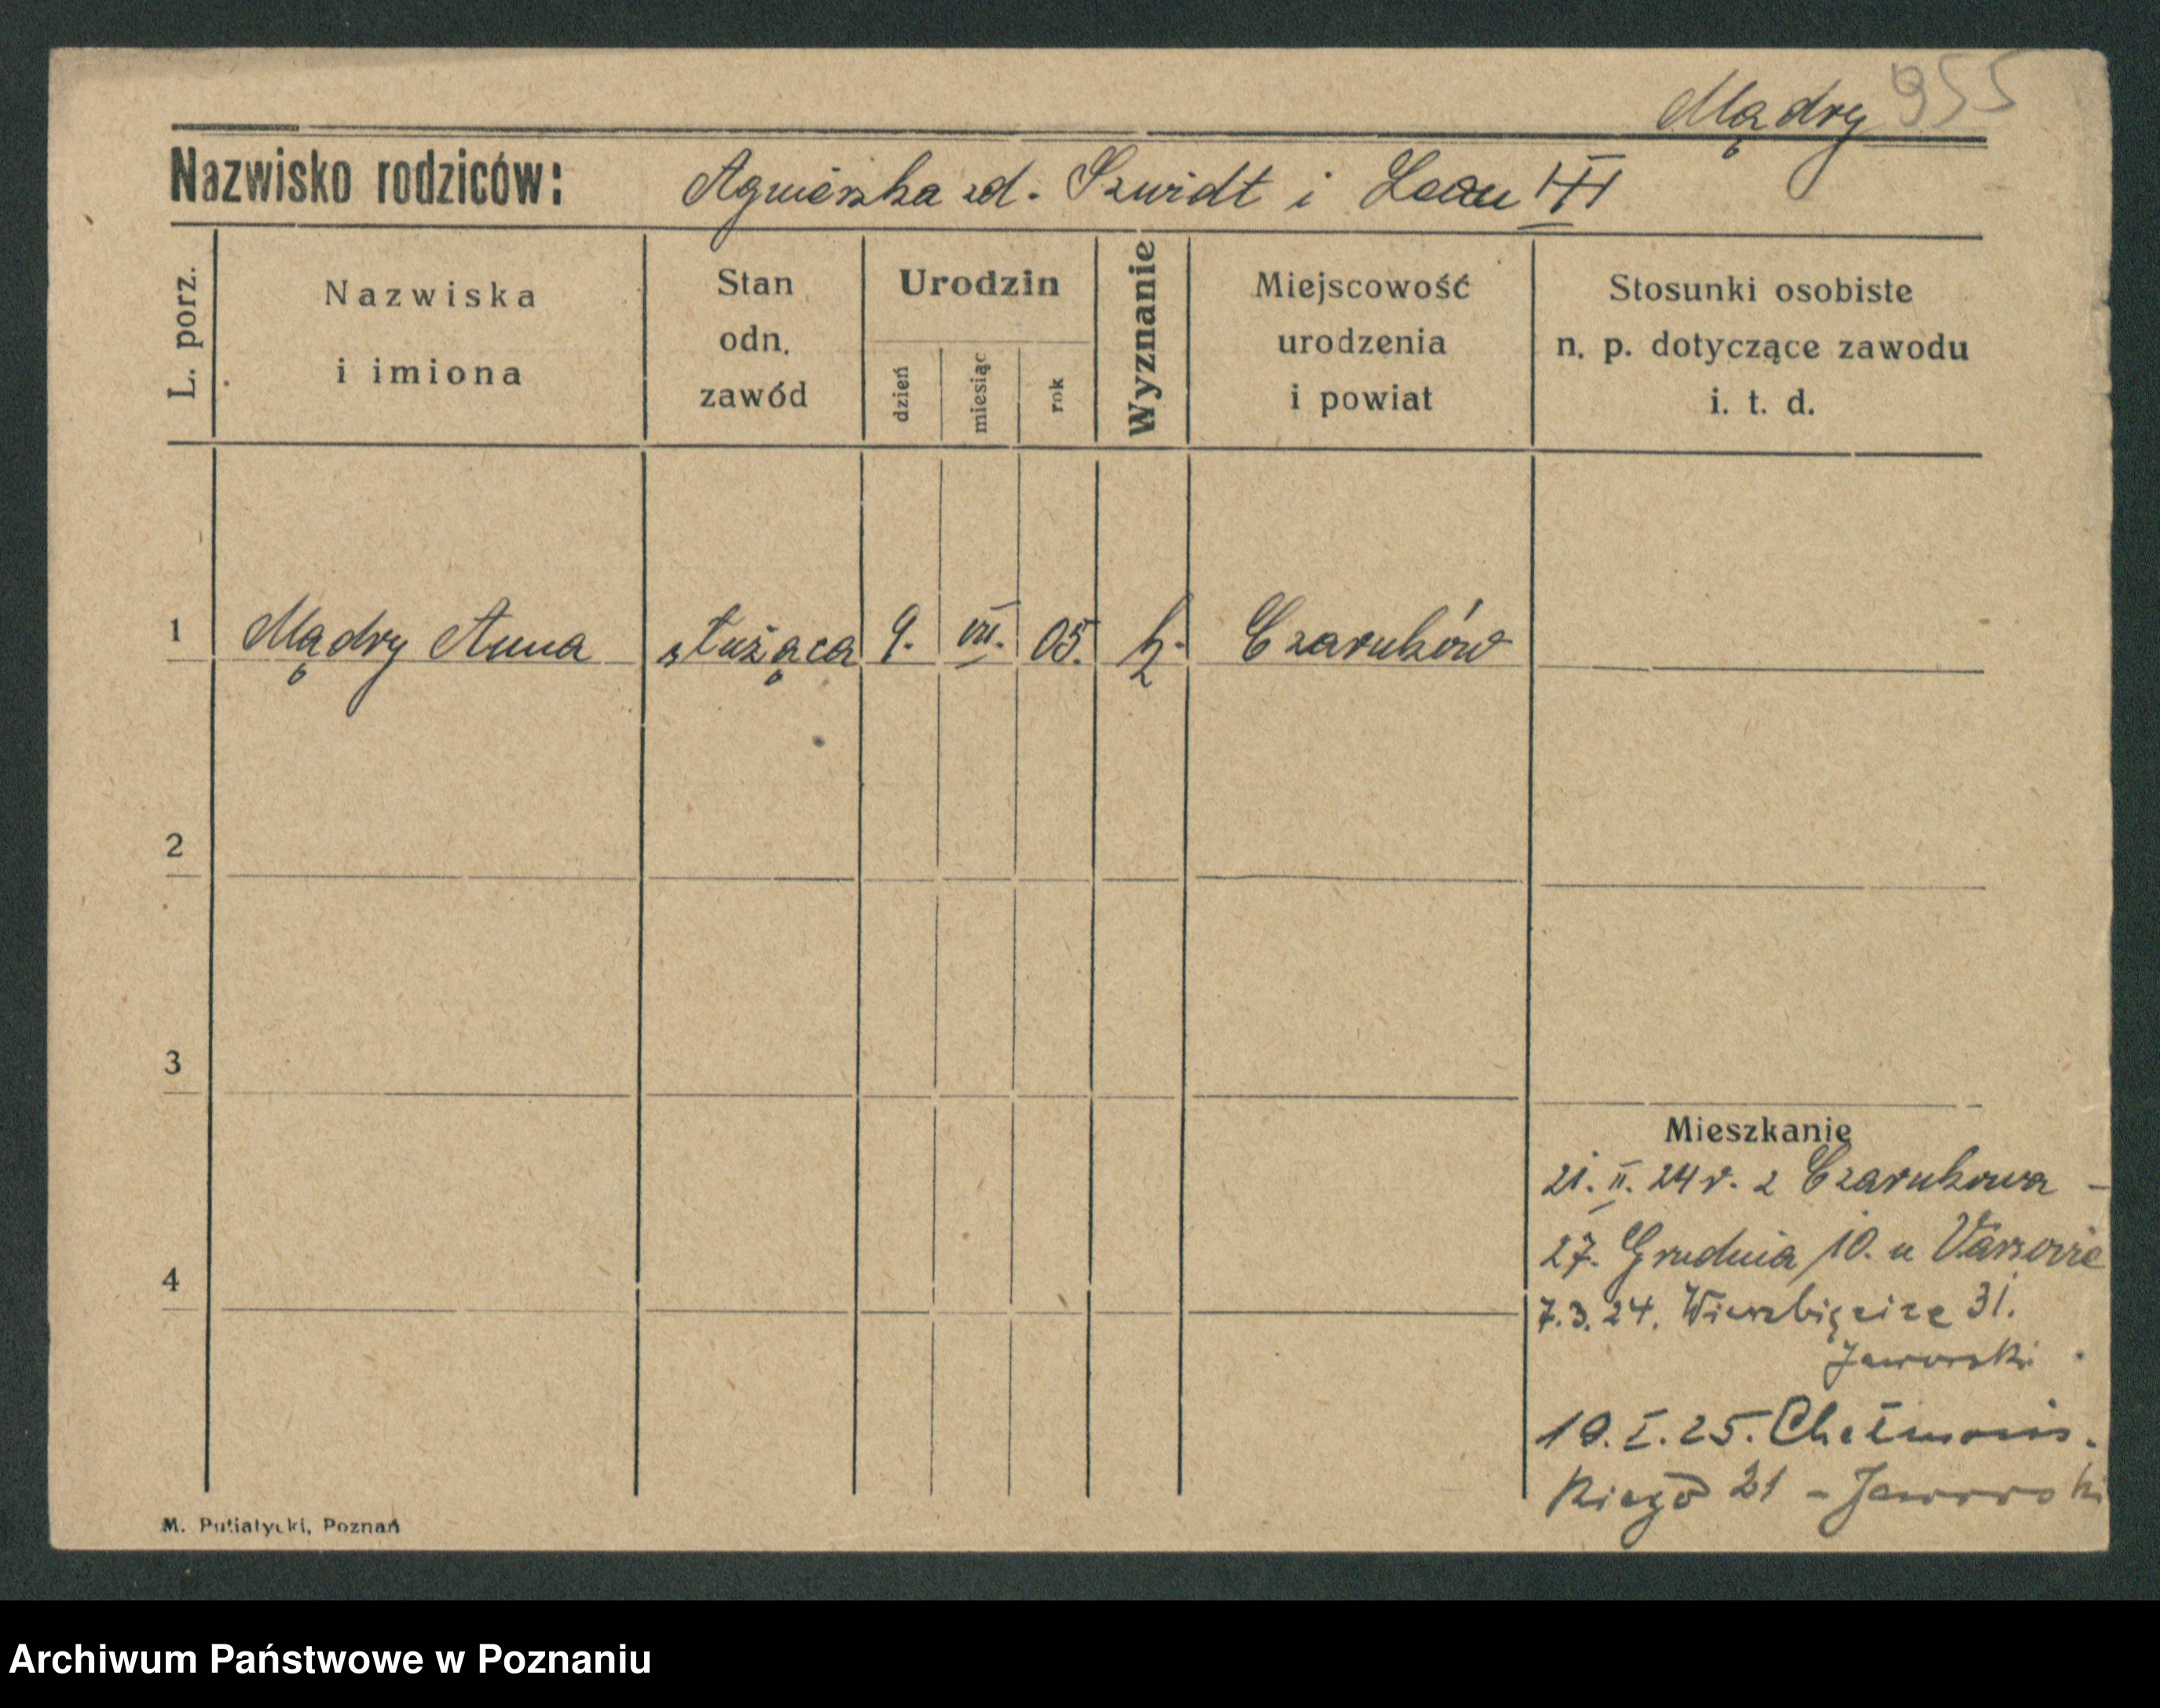 Mądry 955
Nazwisko rodziców: Agnieszka zd. Szmidt i Leon III
L. porz.
Nazwiska i imiona
Stan odn. zawód
Urodzin
dzień
miesiąc
rok
Wyznanie
Miejscowość urodzenia i powiat
Stosunki osobiste n. p. dotyczące zawodu i. t. d.
1 Mądry Anna służąca 9. VII. 05. k. Czarnków
2
3
Mieszkanie
21. II. 24 r. z Czarnkowa –
27. Grudnia 10. u
4
7.3.24. Wierzbięcice 31.
Jaworski
10. I. 25. Chełmońs.
kiego 21 – Jaworski
M. Putiatycki, Poznań
Archiwum Państwowe w Poznaniu